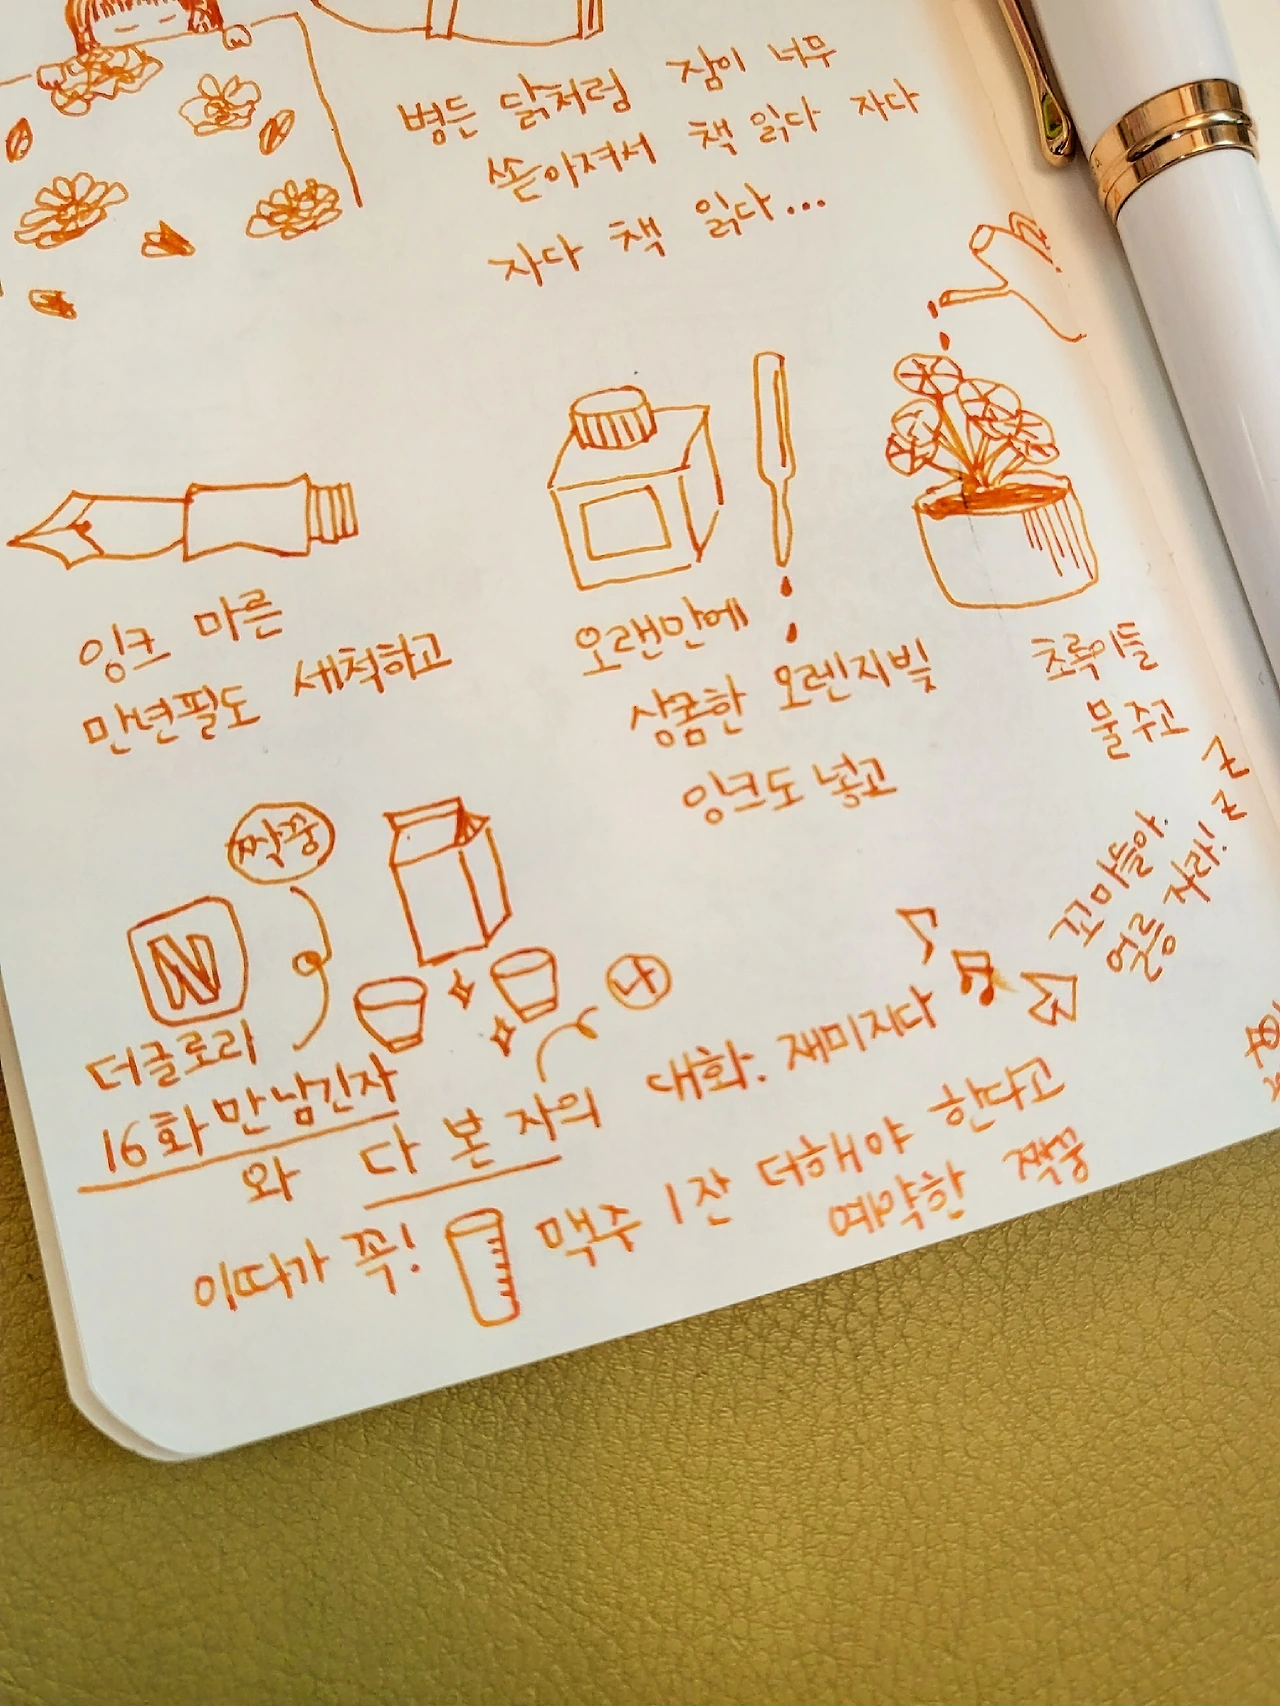 병든 닭처럼 잠이 너무
쏟아져서 책 읽다 자다
자다 책 읽다...
잉크 마른
만년필도 세척하고
오랜만에
상콤한 오렌지빛
잉크도 넣고
초록이들
물 주고
꼬마들아.
얼릉 자라! z z
짝꿍
N
더글로리
16화 만 남긴 자
와 다 본 자의 대화. 재미지다
나
이따가 꼭! 맥주 1잔 더해야 한다고
예약한 짝꿍